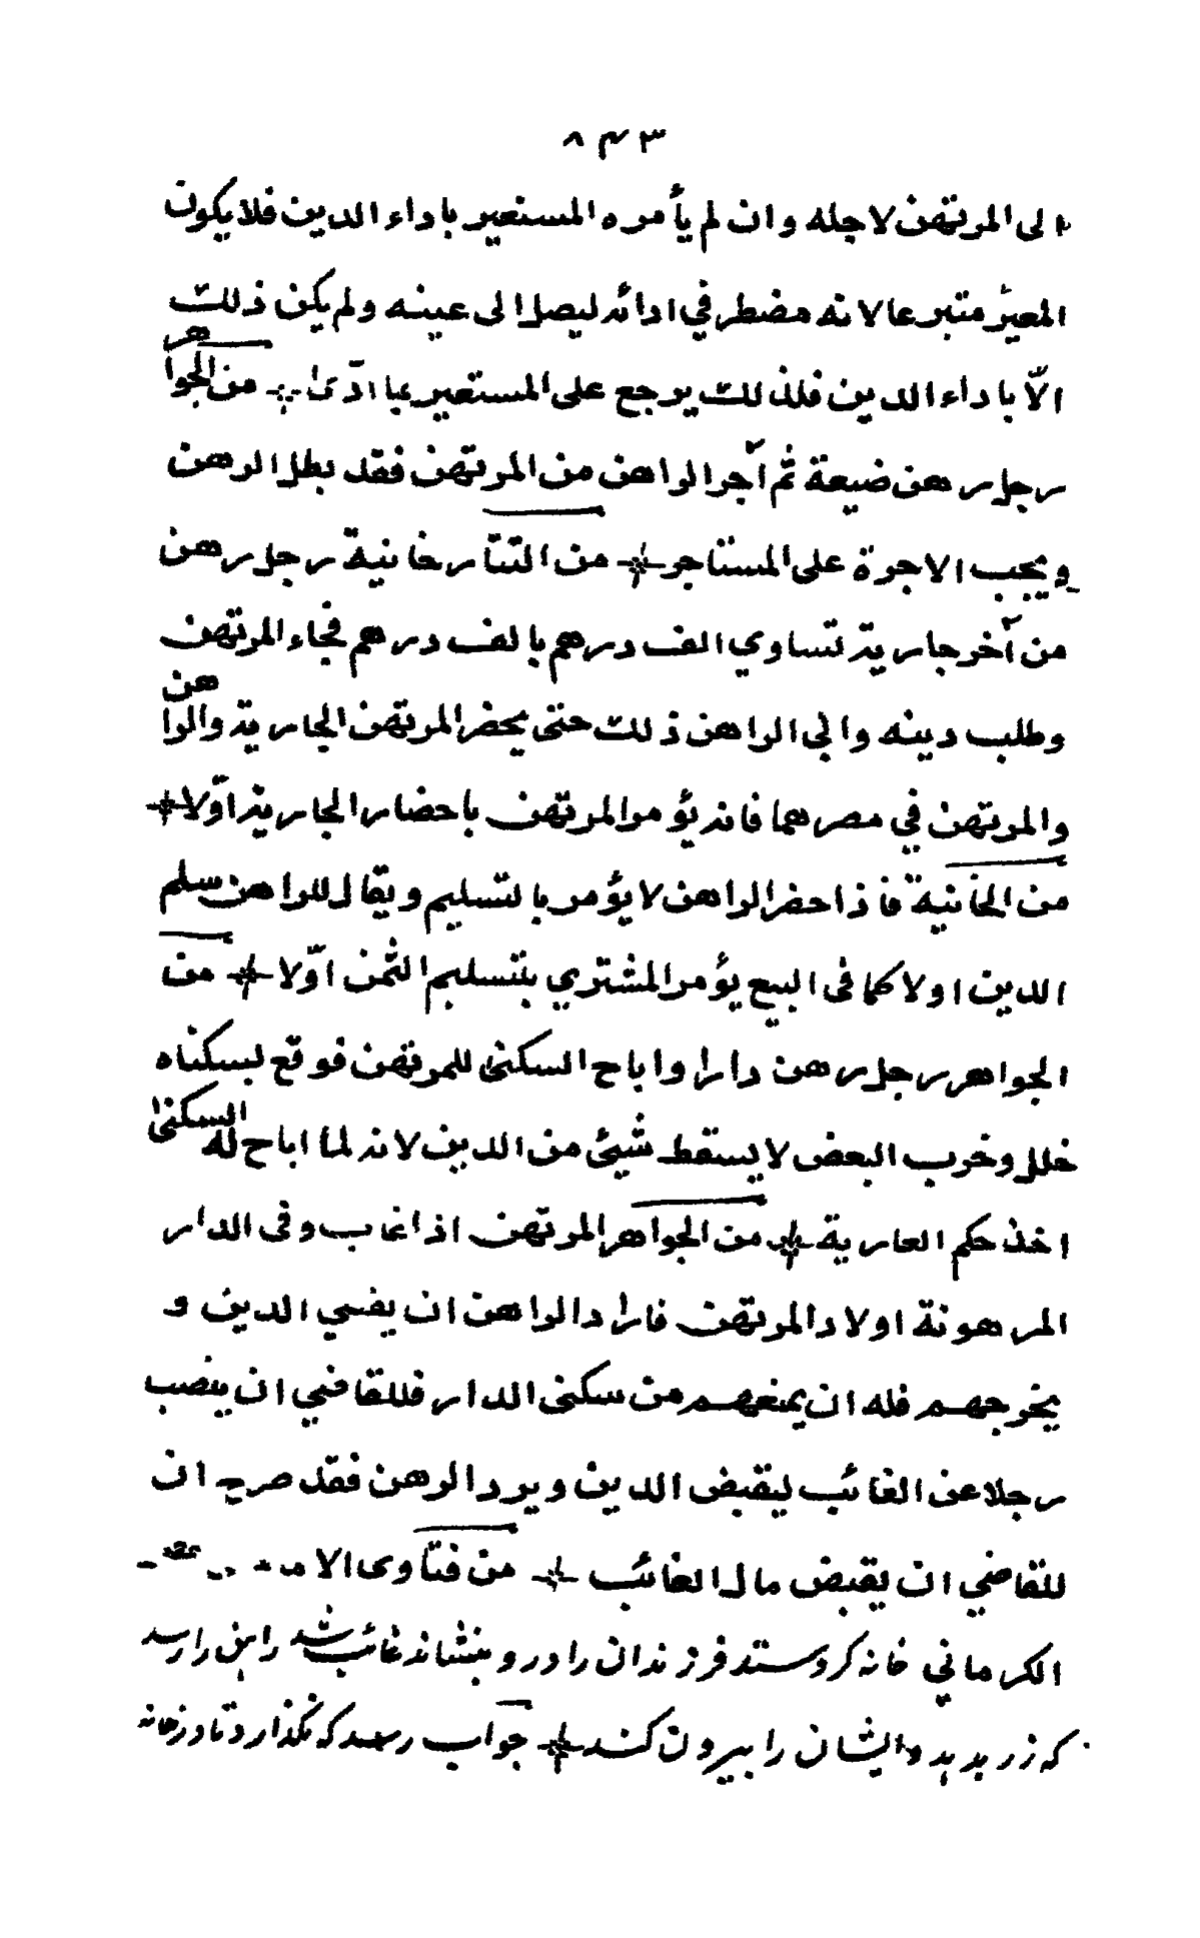 ٨٤٣
الى المرتهن لاجله وان لم يأمره المستعير باداء الدين فلا يكون
المعير متبرعا لانه مضطر في ادائه ليصل الى عينه ولم يكن ذلك
الّا باداء الدين فلذلك يرجع على المستعير بما ادّى من الجواهر
رجل رهن ضيعة ثم آجر الراهن من المرتهن فقد بطل الرهن
ويجب الاجرة على المستاجر من التتارخانية رجل رهن
من آخر جارية تساوي الف درهم بالف درهم فجاء المرتهن
وطلب دينه وابى الراهن ذلك حتى يحضر المرتهن الجارية والراهن
والمرتهن في مصرهما فانه يؤمر المرتهن باحضار الجارية اوّلا
من الخانية فاذا حضر الراهن لا يؤمر بالتسليم ويقال للراهن سلم
الدين اولا كما فى البيع يؤمر المشتري بتسليم الثمن اوّلا من
الجواهر رجل رهن دارا واباح السكنى للمرتهن فوقع بسكناه
خلل وخرب البعض لا يسقط شيئ من الدين لانه لما اباح له السكنى
اخذ حكم العارية من الجواهر المرتهن اذا غاب وفى الدار
المرهونة اولاد المرتهن فاراد الراهن ان يقضي الدين و
يخرجهم فله ان يمنعهم من سكنى الدار فللقاضي ان ينصب
رجلا عن الغائب ليقبض الدين ويرد الرهن فقد صرح ان
للقاضي ان يقبض مال الغائب من فتاوى
الكرماني خانه كرو ستد فرزندان را درو بنشاند غائب شد راهن را رسد
كه زر بدهد وايشان را بيرون كند جواب رسد كه نگذارد تا در خانه